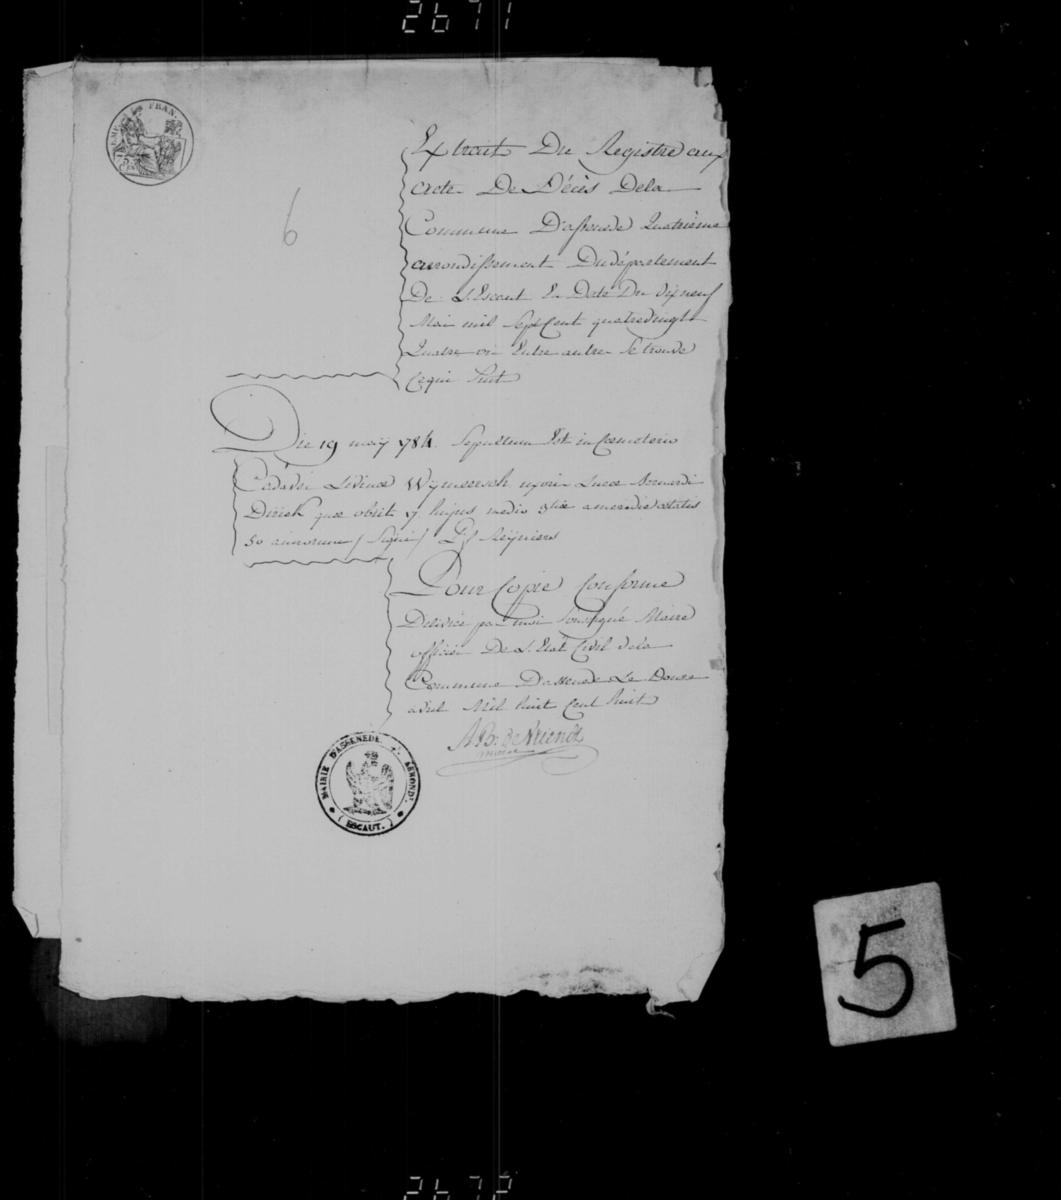 2671
EMP FRAN.
6
Extrait Du Registre aux
acte De Décès Dela
Commune D'assenede Quatrième
arrondissement Du département
De L'Escaut En Date Du dix neuf
Mai mil Sept Cent quatrevingt
Quatre où Entre autre Se trouve
Cequi Suit
Die 19 maij 1784 Sepultum Est in Coemeterio
Cadaver Livinae Wymeersch uxoris Lucae Bernardi
Dirick quae obiit 17 hujus media 9tia a meridie aetatis
50 annorum / Signé / Reijniers
Pour Copie Conforme
Délivrée par moi Soussigné Maire
officier De L'Etat Civil dela
Commune D'assenede Le Douze
avril Mil huit Cent huit
De Vriendt
maire
MAIRIE D'ASSENEDE ARROND.
( ESCAUT. )
5
2672